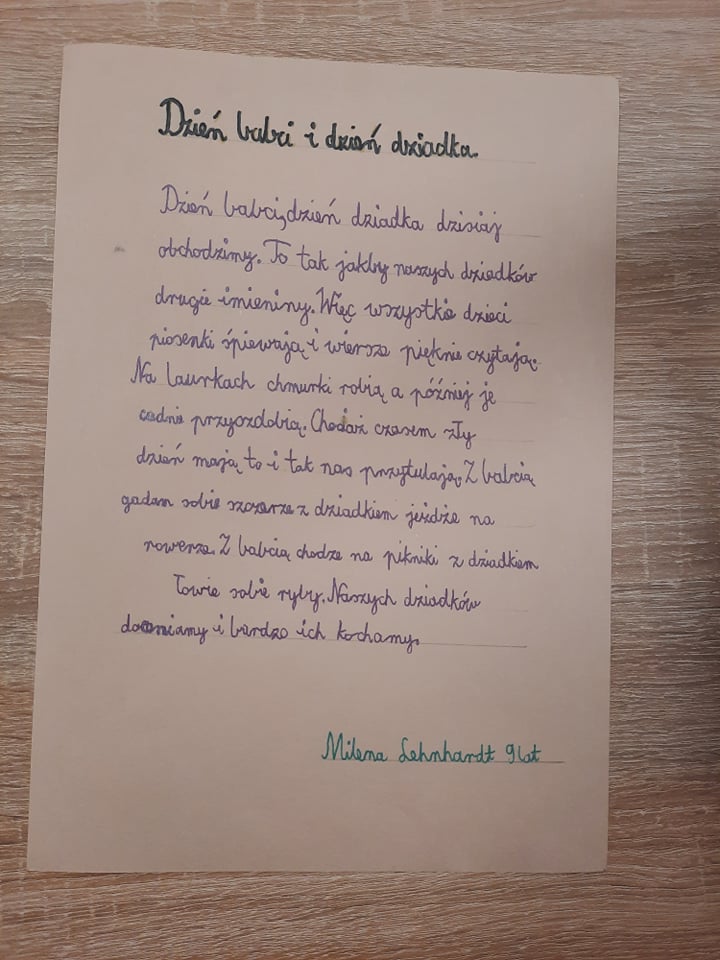 Dzień babci i dzień dziadka.
Dzień babci,dzień dziadka dzisiaj
obchodzimy. To tak jakby naszych dziadków
drugie imieniny. Więc wszystkie dzieci
piosenki śpiewają i wiersze pięknie czytają.
Na laurkach chmurki robią a później je
ładnie przyozdobią. Chodaż czasem zły
dzień mają to i tak nas przytulają. Z babcią
gadam sobie szczerze z dziadkiem jeżdże na
rowerze. Z babcią chodze na pikniki z dziadkiem
łowie sobie ryby. Naszych dziadków
doceniamy i bardzo ich kochamy.
Milena Lehnhardt 9 lat